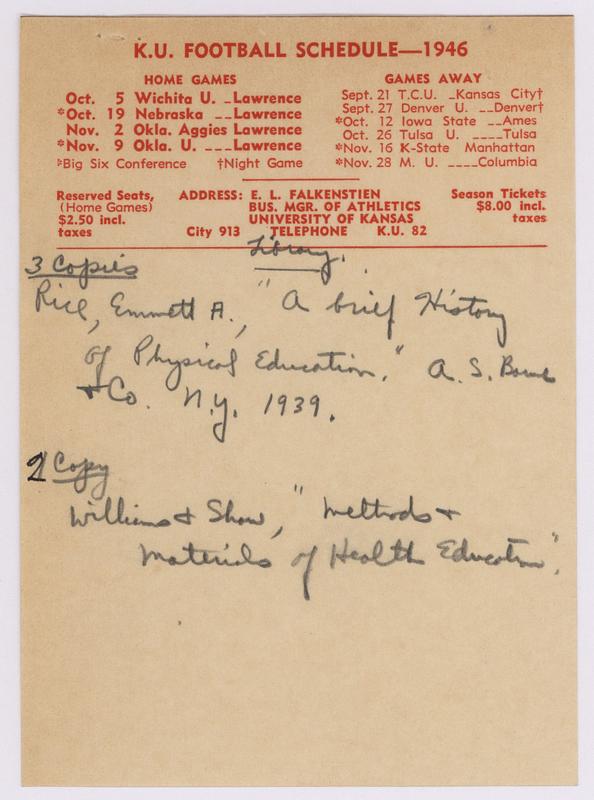 K.U. FOOTBALL SCHEDULE—1946
HOME GAMES
Oct. 5 Wichita U. _Lawrence
*Oct. 19 Nebraska __Lawrence
Nov. 2 Okla. Aggies Lawrence
*Nov. 9 Okla. U. ___Lawrence
*Big Six Conference †Night Game
GAMES AWAY
Sept. 21 T.C.U. _Kansas City†
Sept. 27 Denver U. __Denver†
*Oct. 12 Iowa State __Ames
Oct. 26 Tulsa U. ____Tulsa
*Nov. 16 K-State Manhattan
*Nov. 28 M. U. ____Columbia
Reserved Seats,
(Home Games)
$2.50 incl.
taxes
ADDRESS: E. L. FALKENSTIEN
BUS. MGR. OF ATHLETICS
UNIVERSITY OF KANSAS
City 913 TELEPHONE K.U. 82
Season Tickets
$8.00 incl.
taxes
Library.
3 Copies
Rice, Emmett A., "A brief History
of Physical Education." A. S. Barnes
+ Co. N.y. 1939.
Copy
Williams + Shaw, "Methods +
Materials of Health Education".